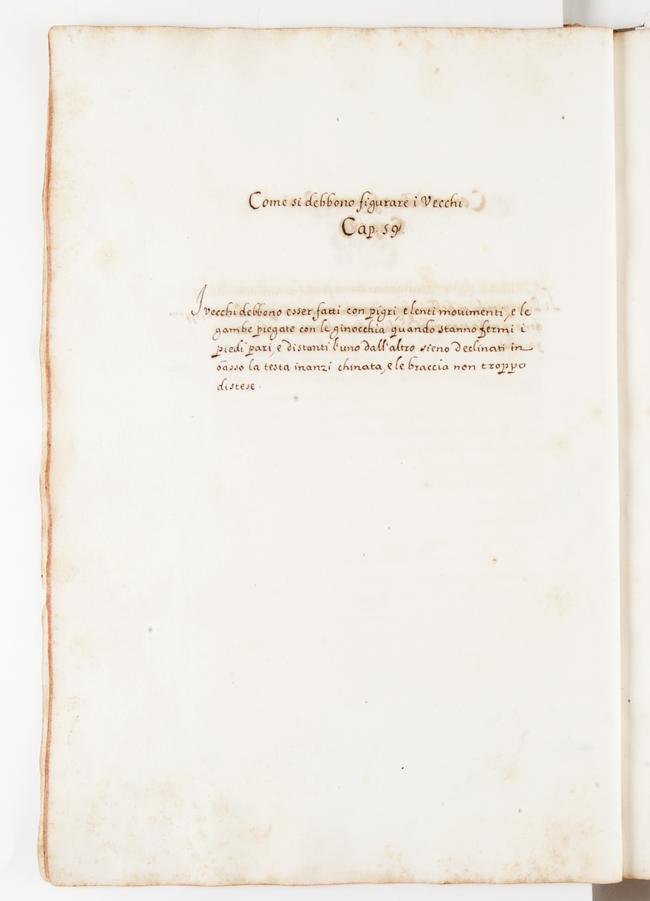 Come si debbono figurare i Vecchi
Cap. 59
I vecchi debbono esser fatti con pigri, e lenti movimenti, e le
gambe piegate con le ginocchia quando stanno fermi i
piedi pari, e distanti l'uno dall'altro sieno declinati in
basso la testa inanzi chinata, e le braccia non troppo
distese.